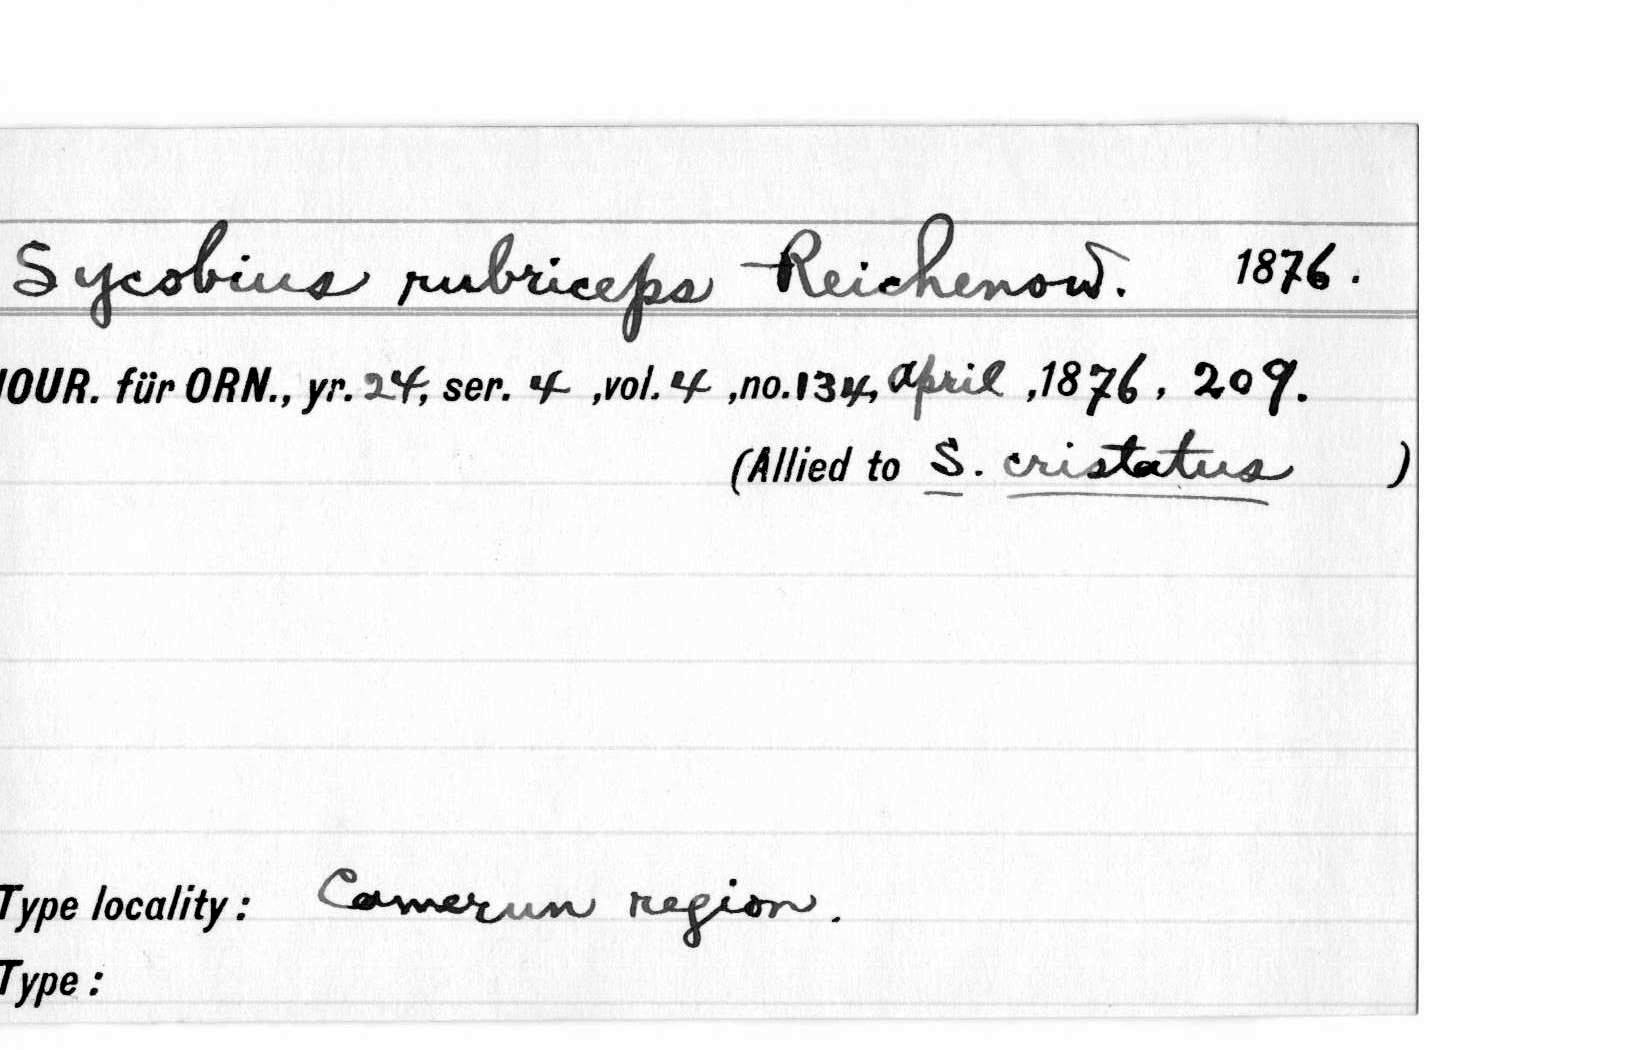 Sycobius rubriceps Reichenow. 1876.
JOUR. für ORN., yr. 24, ser. 4 ,vol. 4 ,no. 134, April ,1876, 209.
(Allied to S. cristatus )
Type locality: Camerun region.
Type: